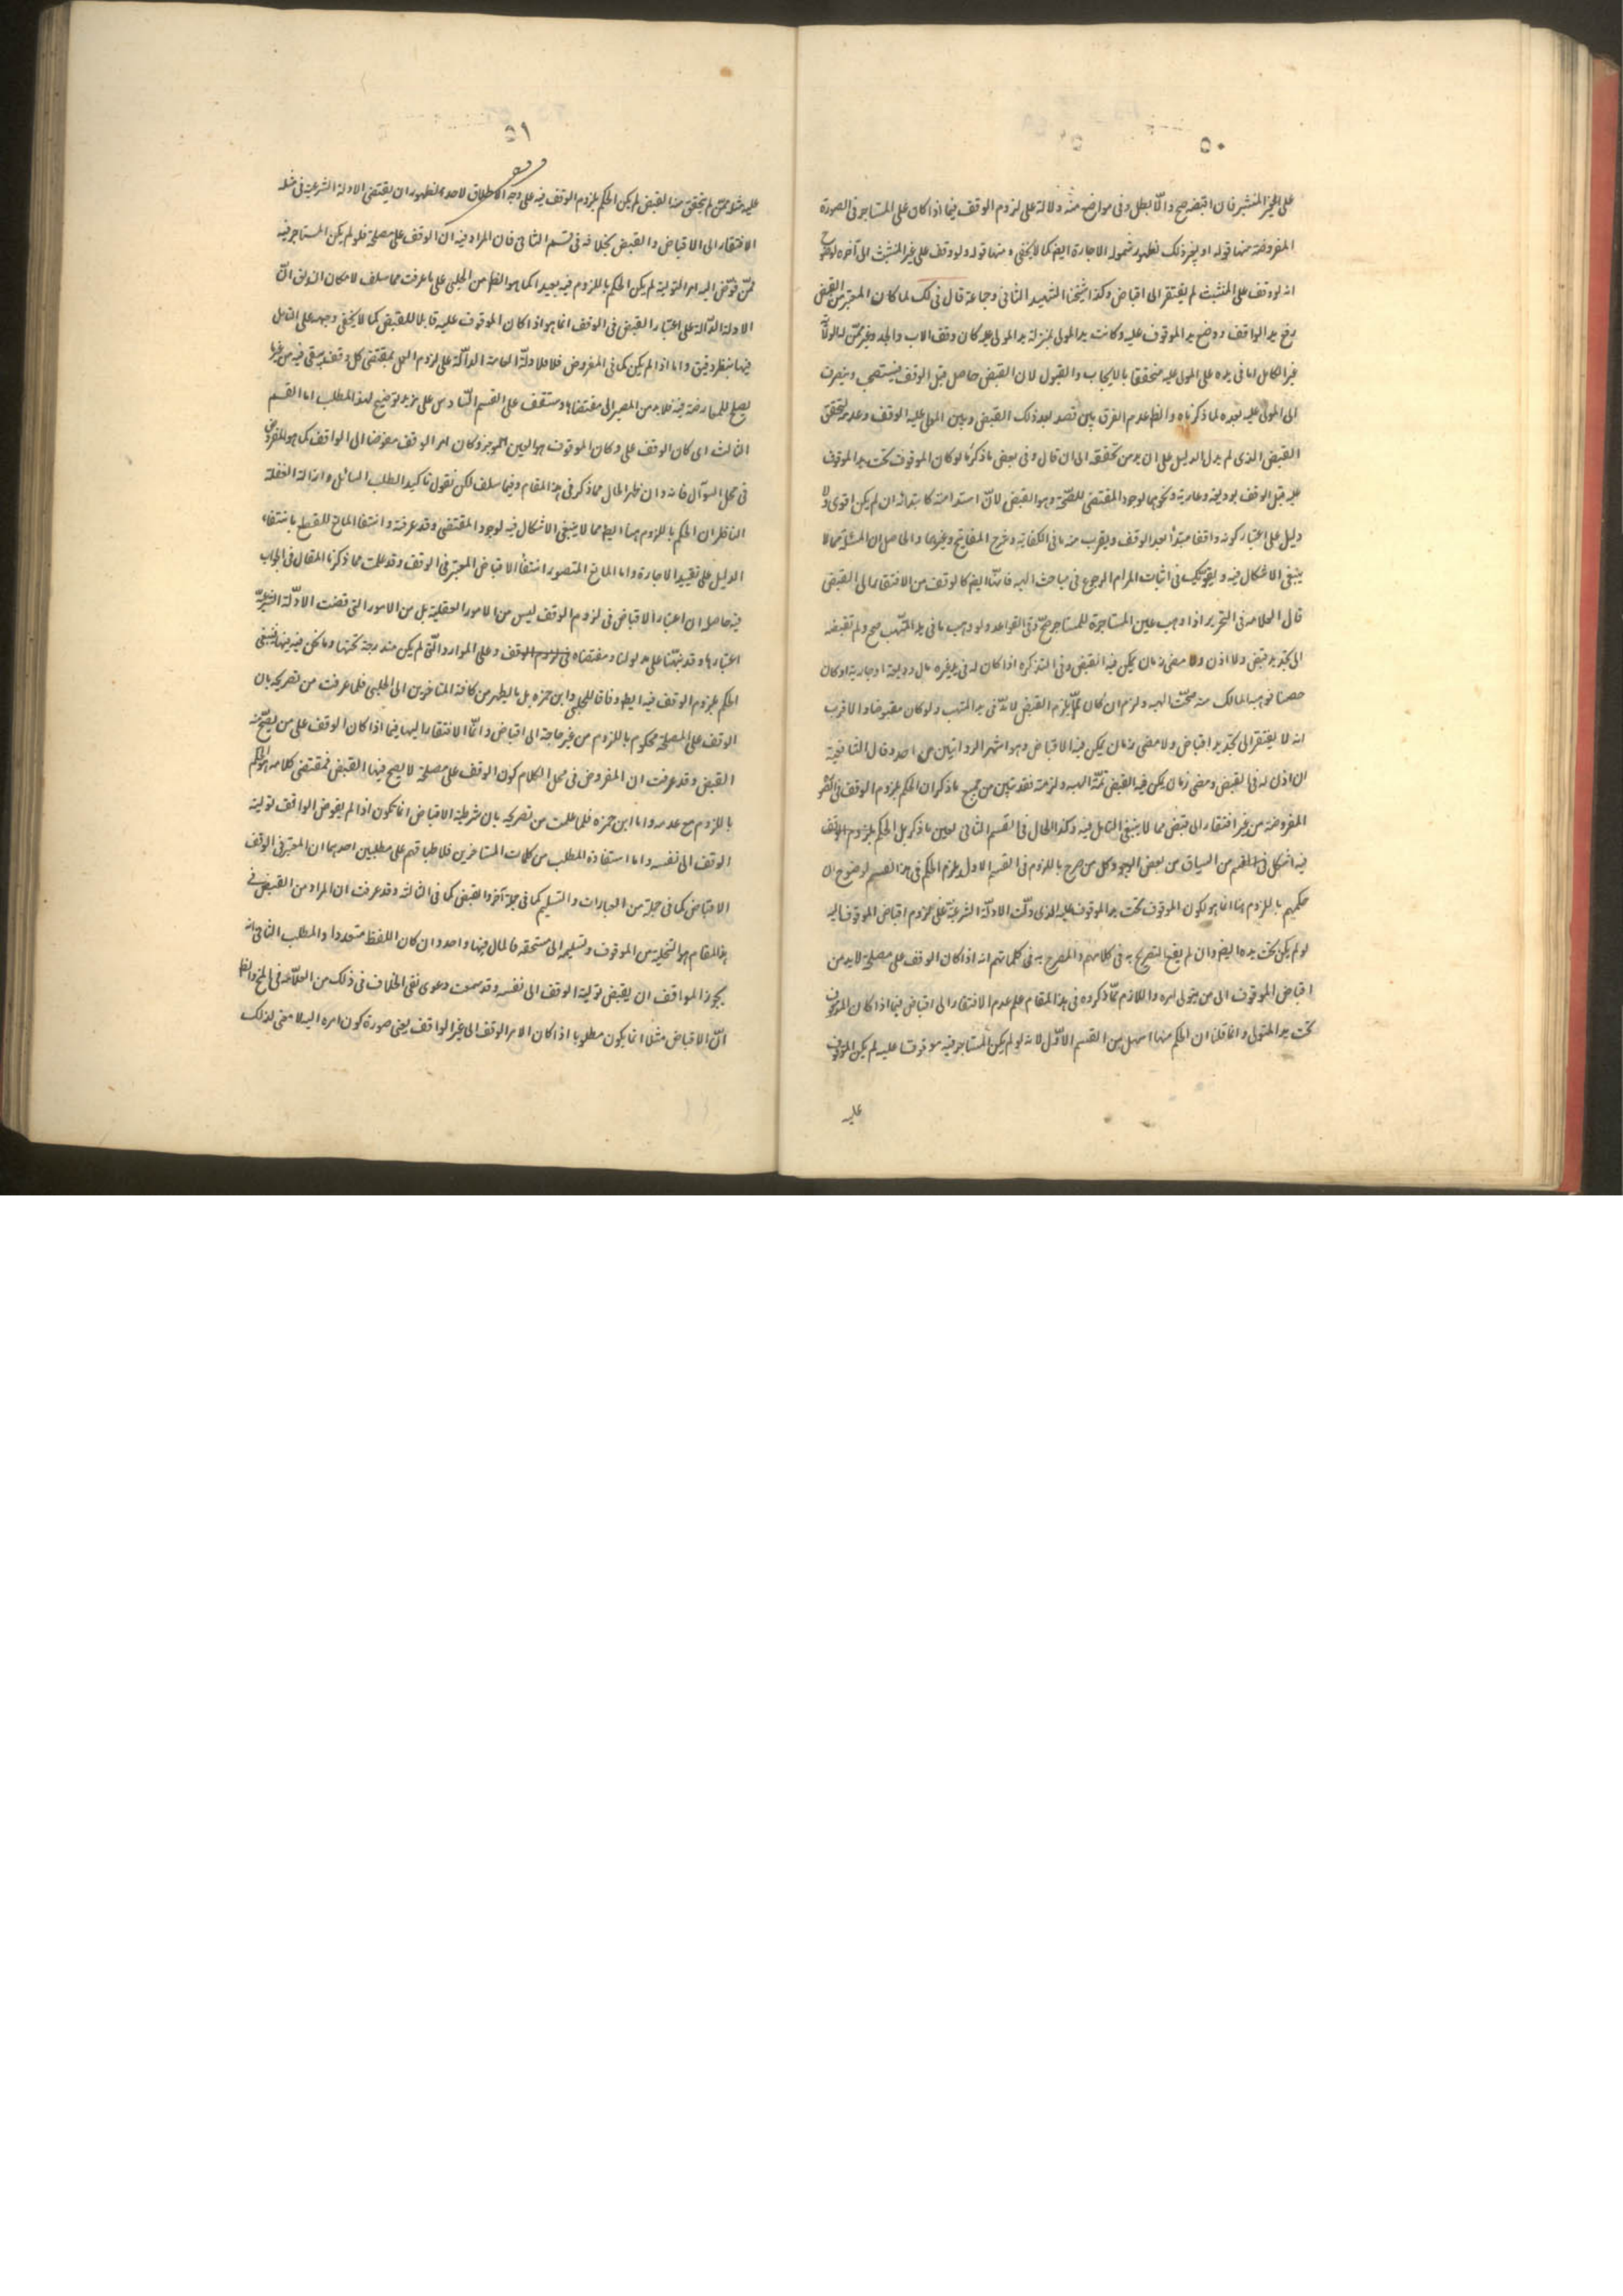 ٥٠
على الحيز المنتشر فان اقبضه صح والا بطل وفى مواضع منه دلالة على لزوم الوقف فيما اذا كان على المستاجر فى الصورة
المفروضة منها قوله او بغير ذلك لظهور شموله الاجارة ايضا كما لا يخفى ومنها قوله ولو وقف على غير المتشبث الى آخره
انه لو وقف على المتشبث لم يفتقر الى اقباض وكذا شيخنا الشهيد الثانى وجماعة قال فى لك لما كان المعتبر من القبض
رفع يد الواقف ووضع يد الموقوف عليه وكانت يد المولى بمنزلة يد المولى عليه كان وقف الاب والجد وغيرهما ممن له الولاية
غير الكامل اما فى يده على المولى عليه متحققا بالايجاب والقبول لان القبض حاصل قبل الوقف فيستصحب وينصرف
الى المولى عليه بعده لما ذكرناه والظ عدم الفرق بين قصد بعد ذلك القبض وبين المولى عليه الوقف وعدمه لتحقق
القبض الذى لم يدل الدليل على ان يد من تحققه الى ان قال وفى بعض ما ذكرنا لو كان الموقوف تحت يد الموقوف
عليه قبل الوقف بوديعة وعارية ونحوهما لوجود المقتضى للصحة وهو القبض لان استدامته كابتدائه ان لم يكن اقوى ولا
دليل على اعتبار كونه واقفا مبتدأ بعد الوقف ويقرب منه ما فى الكفاية وشرح المفاتيح وغيرهما والحاصل ان المسئلة مما لا
ينبغى الاشكال فيه و فى اثبات المرام الرجوع فى مباحث الهبه فانها ايضا كالوقف من الافتقار الى القبض
قال العلامة فى التحرير اذا وهب عين المستاجرة للمستاجر صح وفى القواعد ولو وهب ما فى يد المتهب صح ولم
الى تجديد قبض ولا اذن ولا مضى زمان يمكن فيه القبض وفى التذكرة اذا كان له فى يد غيره مال وديعة او عارية او كان
غصبا فوهبه المالك منه صحت الهبه ولزم ان كان مما يلزم القبض لانه فى يد المتهب ولو كان مقبوضا والاقرب
انه لا يفتقر الى تجديد اقباض ولا مضى زمان يمكن فيه الاقباض وهو اشهر الروايتين من احمد وقال الشافعية
ان اذن له فى القبض ومضى زمان يمكن فيه القبض تمت الهبه ولزمت فقد تبين من جميع ما ذكر ان الحكم بلزوم الوقف فى الصورة
المفروضة من غير افتقار الى قبض مما لا ينبغى التامل فيه وكذا الحال فى القسم الثانى لعين ما ذكر بل الحكم بلزوم الوقف
فيه فى القسم من السياق من بعض الوجوه وكل من صرح باللزوم فى القسم الاول يلزم الحكم فى هذا القسم لوضوح ان
حكمهم باللزوم هنا انما هو لكون الموقوف تحت يد الموقوف عليه الذى دلت الادلة الشرعية على لزوم اقباض الموقوف اليه
لو لم يكن تحت يده ايضا وان لم يقع التصريح به فى كلامهم والمصرح به فى كلماتهم انه اذا كان الوقف على مصلحة لا بد من
اقباض الموقوف الى من يتولى امره واللازم مما ذكروه فى هذا المقام علم عدم الافتقار الى اقباض فيما اذا كان الموقوف
تحت يد المتولى وانما قلنا ان الحكم منها اسهل من القسم الاول لانه لو لم يكن المستاجر فيه موقوفا عليه لم يكن الموقوف
عليه
٥١
عليه مثلا ممن لم يتحقق منه القبض لم يكن الحكم بلزوم الوقف فيه على وجه الاطلاق لاحد لظهور ان يقتضى الادلة الشرعية فى مثله
الافتقار الى الاقباض والقبض بخلافه فى القسم الثانى فان المراد فيه ان الوقف على مصلحة فلو لم يكن المستاجر فيه
ممن فوّض اليه امر التولية لم يكن الحكم باللزوم فيه بعيدا كما هو الظ من الحلبى على ما عرفت مما سلف لامكان ان يق ان
الادلة الدالة على اعتبار القبض فى الوقف انما هو اذا كان الموقوف عليه قابلا للقبض كما لا يخفى وجهه على التامل
فيها بنظر دقيق واما اذا لم يكن كما فى المفروض فلا فلا دلة العامة الدالة على لزوم العمل بمقتضى كل وقف يبقى فيه من غير ما
يصلح للمعارضة فيه فلا بد من المصير الى مقتضاها وستقف على القسم السادس على مزيد توضيح لهذا المطلب اما القسم
الثالث اى كان الوقف على وكان الموقوف هو العين الموجر وكان امر الوقف مفوضا الى الواقف كما هو المفروض
فى محل السوال فانه وان ظهر الحال مما ذكر فى هذا المقام وفيما سلف لكن نقول تاكيدا لطلب السائل وازالة الغفلة
الناظر ان الحكم باللزوم هنا ايضا مما لا ينبغى الاشكال فيه لوجود المقتضى وقد عرفته وانتفا المانع للقطع بانتفاء
الدليل على تقييد الاجارة واما المانع المتصور انتفأ الاقباض المعتبر فى الوقف وقد علمت مما ذكرنا المقال فى الجواب
فيه حاصله ان اعتبار الاقباض فى لزوم الوقف ليس من الامور العقلية بل من الامور التى قضت الادلة الشرعية
اعتبارها وقد نبهنا على مدلولها ومقتضاه فى لزوم الوقف وعلى الموارد التى لم يكن مندرجة تحتها وما نحن فيه منها فينبغى
الحكم بلزوم الوقف فيه ايضا وفاقا للحلبى وابن حمزه بل يظهر من كافة المتاخرين الى الحلبى فلما عرفت من تصريحه بان
الوقف على المصلحة محكوم باللزوم من غير حاجة الى اقباض وانما الافتقار اليها فيما اذا كان الوقف على من يصح منه
القبض وقد عرفت ان المفروض فى محل الكلام كون الوقف على مصلحة لا يصح فيها القبض فمقتضى كلامه هو الحكم
باللزوم مع عدمه واما ابن حمزه فلما علمت من تصريحه بان شرطية الاقباض انما تكون اذا لم يفوض الواقف تولية
الوقف الى نفسه واما استفادة المطلب من كلمات المتاخرين فلاطباقهم على مطلبين احدهما ان المعتبر فى الوقف
الاقباض كما فى جملة من العبارات والتسليم كما فى جملة آخر والقبض كما فى الثالثة وقد عرفت ان المراد من القبض فى
هذا المقام هو التخلية من الموقوف وتسليمه الى مستحقه فالمال فيها واحد وان كان اللفظ متعددا والمطلب الثانى انه
يجوز الواقف ان يقبض تولية الوقف الى نفسه وقد سمعت دعوى نفى الخلاف فى ذلك من العلامة فى
ان الاقباض مثلا انما يكون مطلوبا اذا كان الامر الوقف الى غير الواقف يعنى صورة كون امره اليه لا معنى لذلك